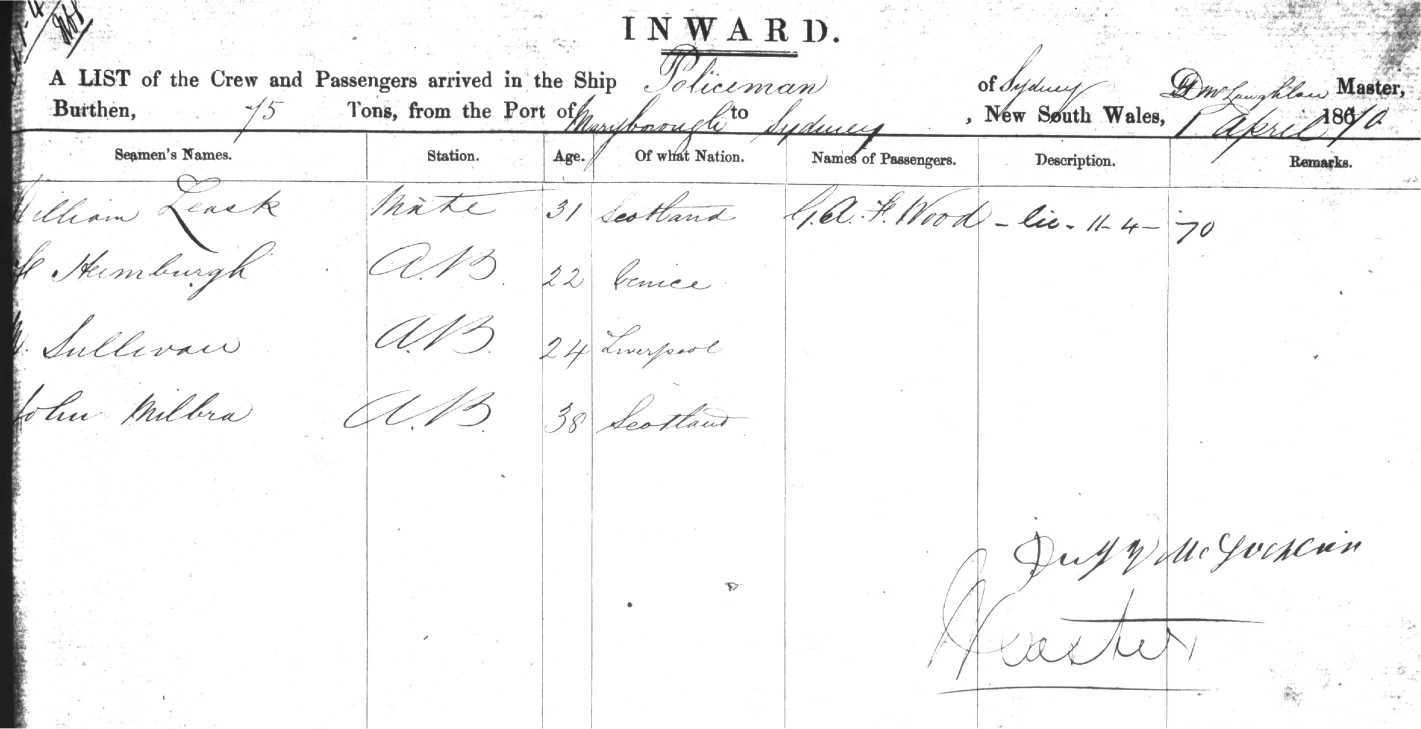 INWARD.
A LIST of the Crew and Passengers arrived in the Ship Policeman of Sydney D McLaughlan Master,
Burthen, 75 Tons, from the Port of Maryborough to Sydney, New South Wales, 1 April 1870
Seamen's Names. Station. Age. Of what Nation. Names of Passengers. Description. Remarks.
William Leask Mate 31 Scotland G. A. F. Wood - lic - 11-4-70
Heimburgh A.B. 22 Venice
Sullivan A.B. 24 Liverpool
John Milbra A.B. 38 Scotland
Mc
Master